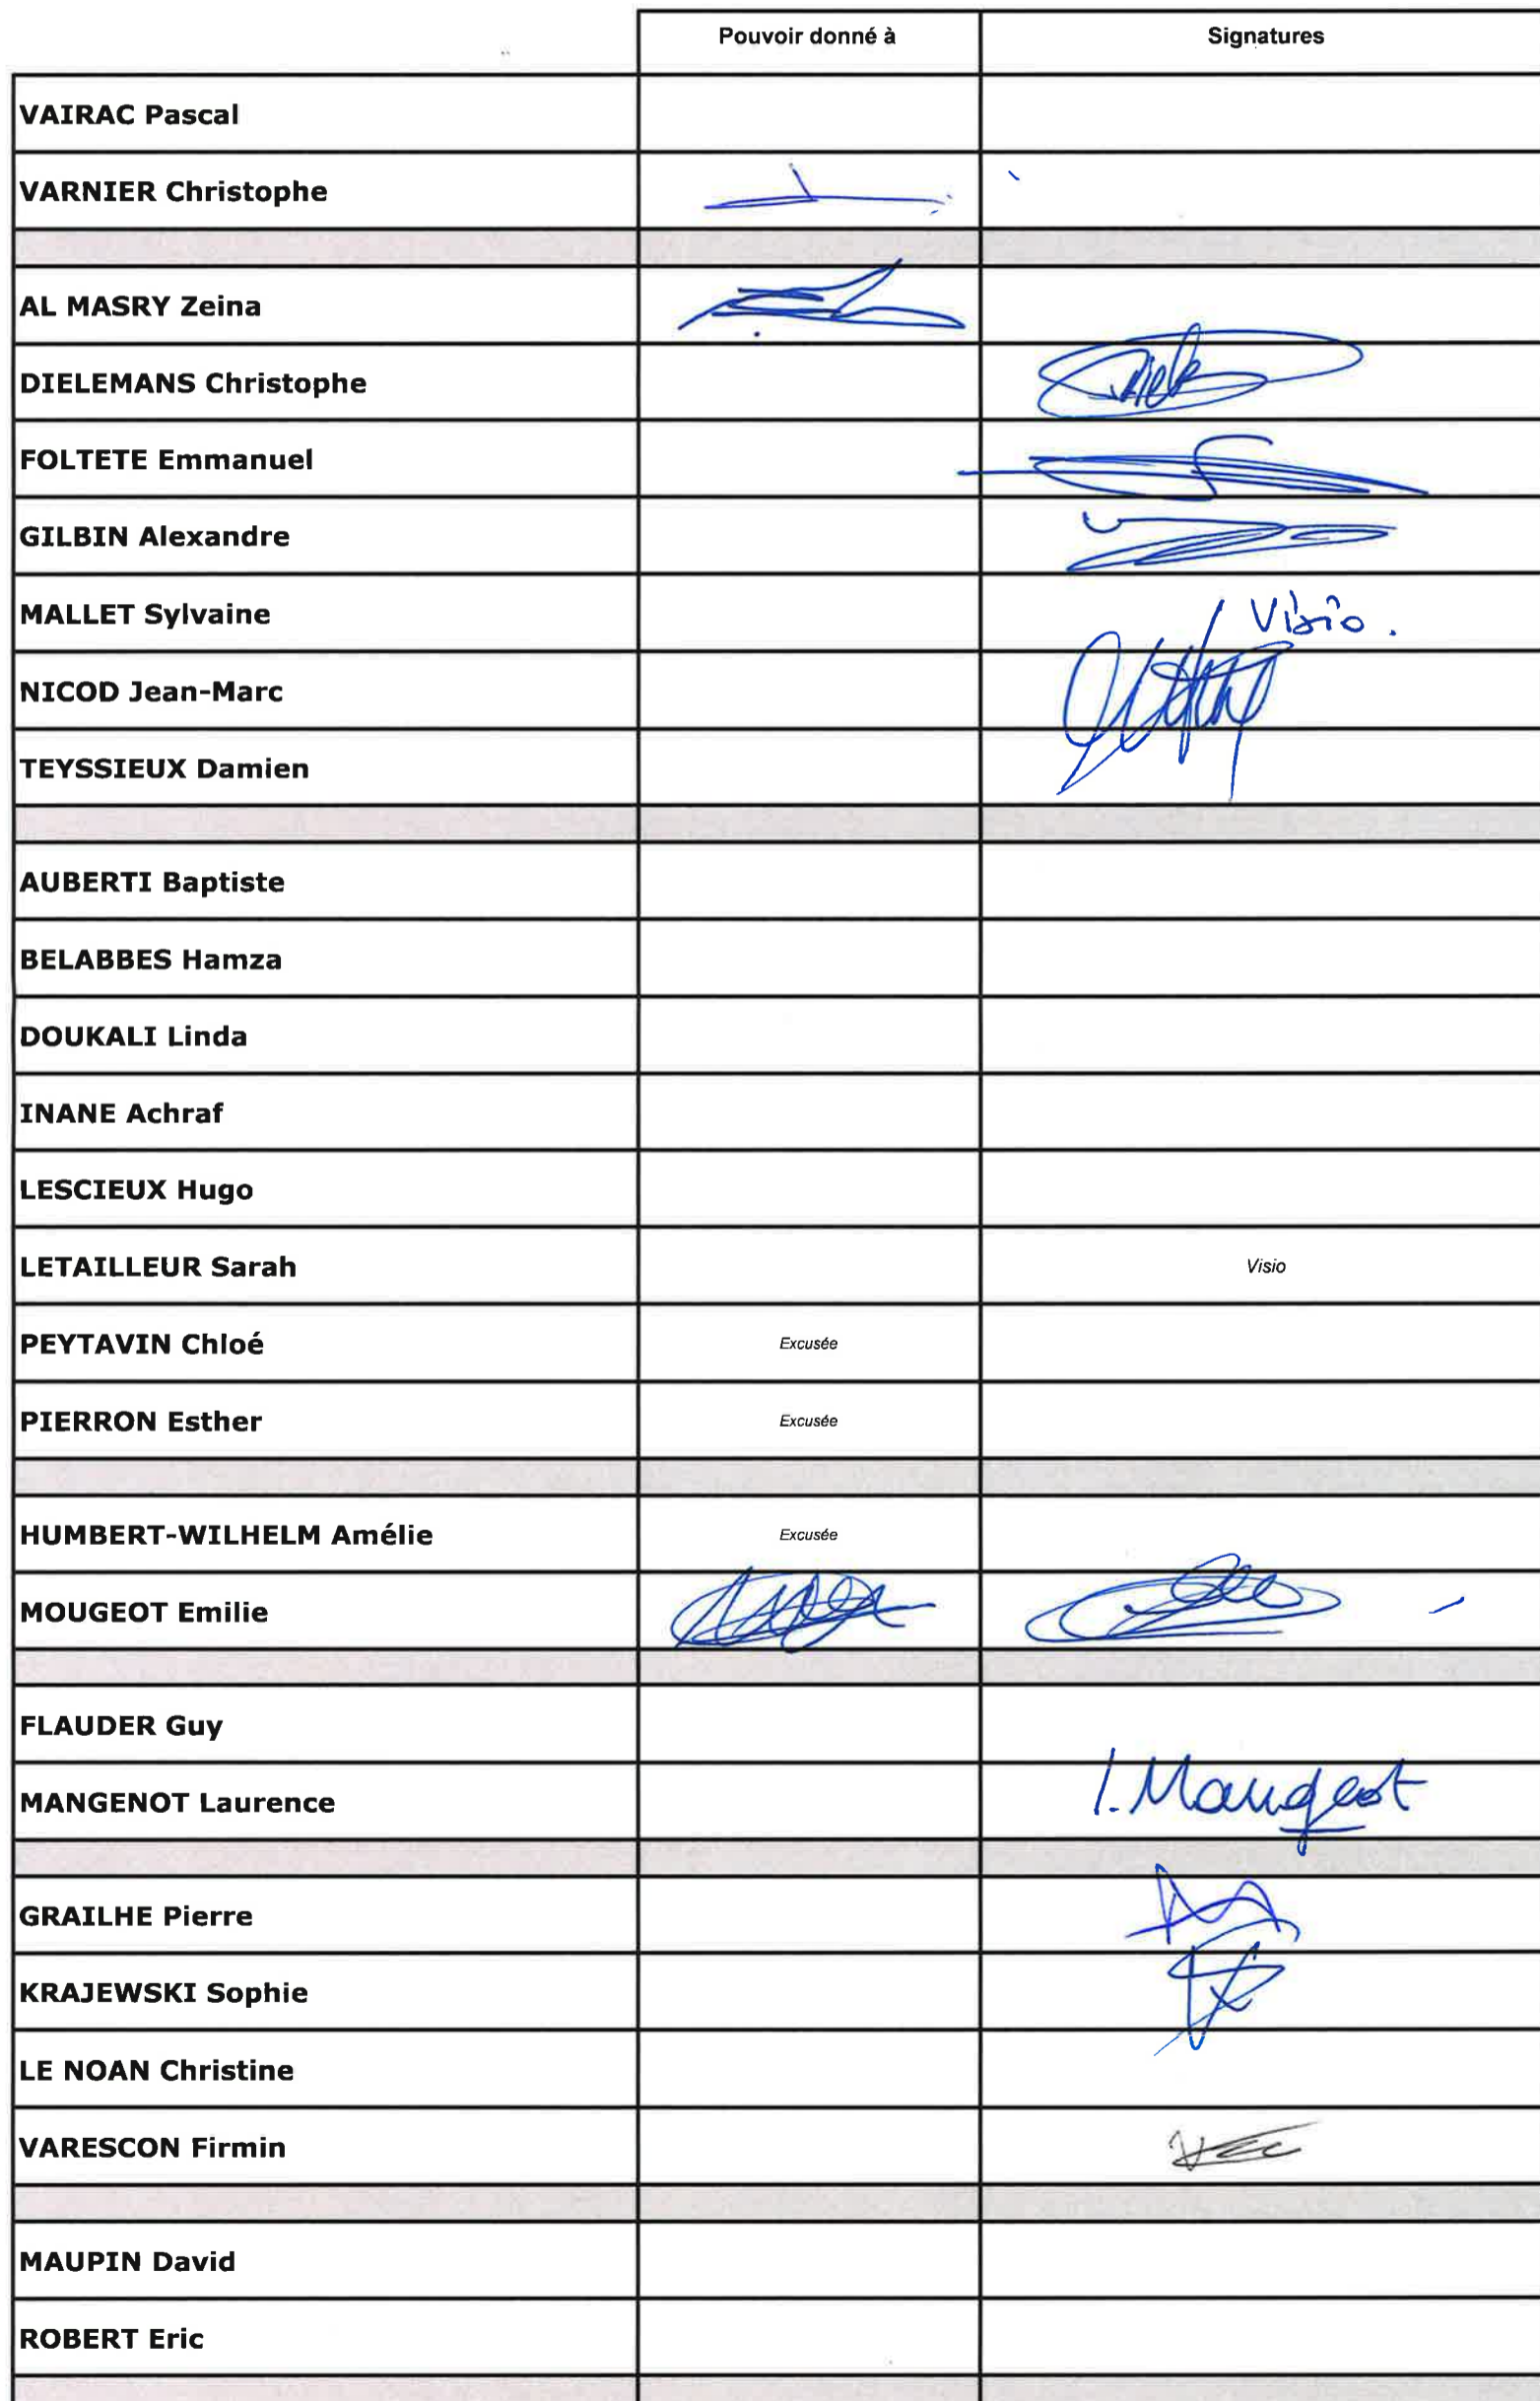 Pouvoir donné à Signatures
VAIRAC Pascal
VARNIER Christophe
AL MASRY Zeina
DIELEMANS Christophe
FOLTETE Emmanuel
GILBIN Alexandre
MALLET Sylvaine Visio.
NICOD Jean-Marc
TEYSSIEUX Damien
AUBERTI Baptiste
BELABBES Hamza
DOUKALI Linda
INANE Achraf
LESCIEUX Hugo
LETAILLEUR Sarah Visio
PEYTAVIN Chloé Excusée
PIERRON Esther Excusée
HUMBERT-WILHELM Amélie Excusée
MOUGEOT Emilie
FLAUDER Guy
MANGENOT Laurence
GRAILHE Pierre
KRAJEWSKI Sophie
LE NOAN Christine
VARESCON Firmin
MAUPIN David
ROBERT Eric